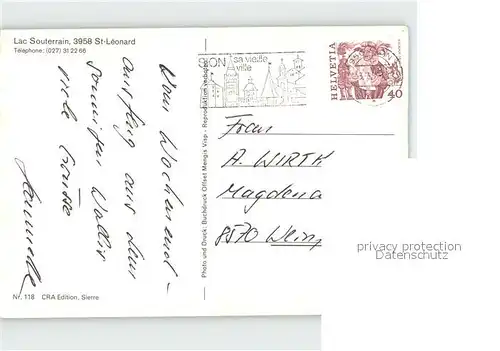 Lac Souterrain, 3958 St-Léonard
Telephone: (027) 31 22 66
SION sa vieille
ville
HELVETIA
40
Vom Wochenend-
ausflug aus dem
sonnigen Wallis
viele Grüsse
Photo und Druck: Buchdruck Offset Mengis Visp - Reproduktion verboten
Frau
A. WIRTH
Magdena
8570 Wein
privacy protection
Datenschutz
Nr. 118 CRA Edition, Sierre